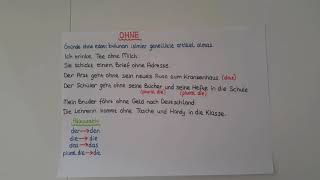 OHNE
Önünde ohne edatı bulunan isimler genellikle artikel almaz.
Ich trinke Tee ohne Milch.
Sie schickt einen Brief ohne Adresse.
Der Arzt geht ohne sein neues Buch zum Krankenhaus. (das)
Der Schüler geht ohne seine Bücher und seine Hefte in die Schule
(plural die) (plural die)
Mein Bruder fährt ohne Geld nach Deutschland.
Die Lehrerin kommt ohne Tasche und Handy in die Klasse.
der → den
die → die
das → das
plural die → die